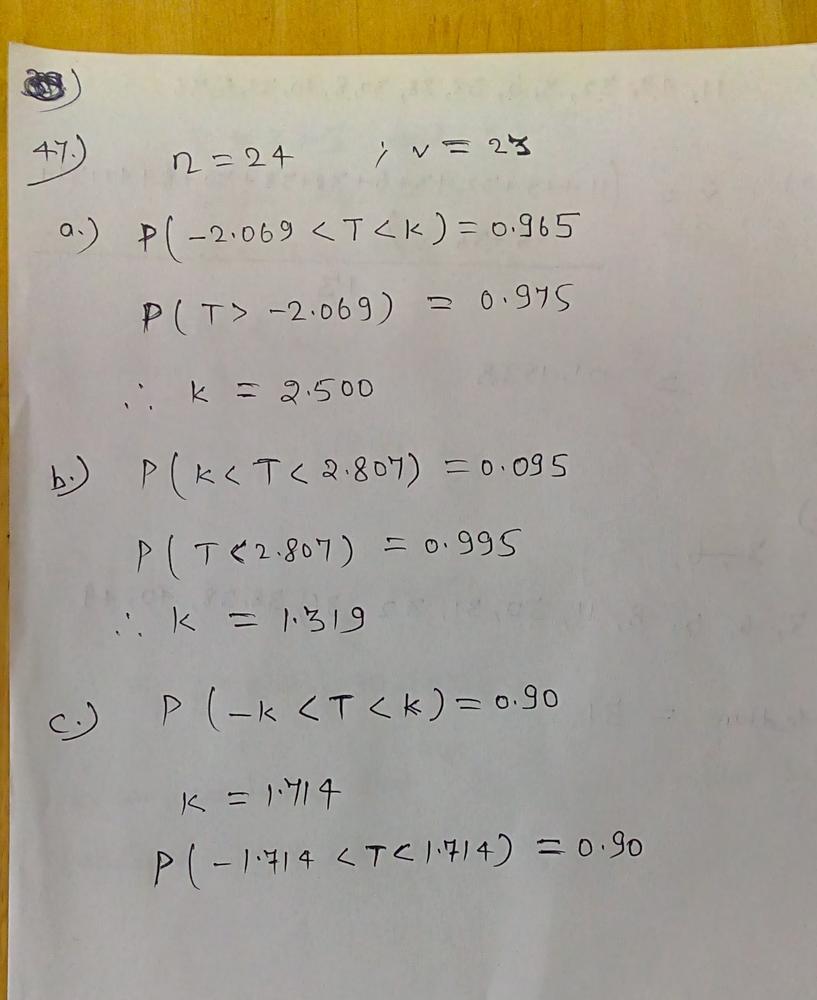 47.) n = 24 ; v = 23
a.) P(-2.069 < T < k) = 0.965
P(T > -2.069) = 0.975
∴ k = 2.500
b.) P(k < T < 2.807) = 0.095
P(T < 2.807) = 0.995
∴ k = 1.319
c.) P(-k < T < k) = 0.90
k = 1.714
P(-1.714 < T < 1.714) = 0.90